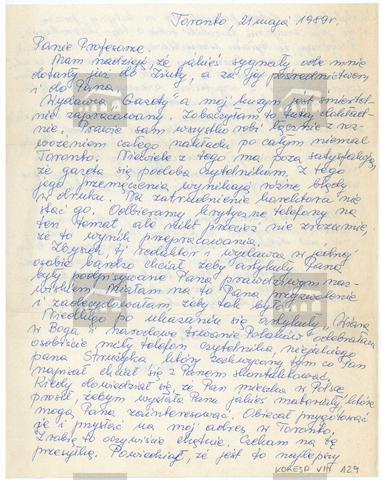 Toronto, 21 maja 1989r.
Panie Profesorze.
Mam nadzieję, że jakieś sygnały ode mnie
dotarły już do Ziuty, a za Jej pośrednictwem
i do Pana.
Wydawca "Gazety" a mój kuzyn jest śmiertel-
nie zapracowany. Zobaczyłam to tutaj dokład-
nie. Prawie sam wszystko robi łącznie z roz-
wożeniem całego nakładu po całym niemal
Toronto. Niewiele z tego ma poza satysfakcją,
że gazeta się podoba czytelnikom. Z tego
jego przemęczenia wynikają różne błędy
w druku. Na zatrudnienie korektora nie
stać go. Odbieramy krytyczne telefony na
ten temat, ale nikt przecież nie zrozumie,
że to wynik przepracowania.
Zbyszek, tj. redaktor i wydawca w jednej
osobie bardzo chciał, żeby artykuły Pana
były podpisywane Pana prawdziwym naz-
wiskiem. Miałam na to Pana przyzwolenie
i zadecydowałam żeby tak było.
Niedługo po ukazaniu się artykułu "Wiara
w Boga i narodowe trwanie Polaków" odebrałam
osobiście miły telefon czytelnika, niejakiego
pana Struzika, który zachwycony tym co Pan
napisał chciał się z Panem skontaktować.
Kiedy dowiedział się, że Pan mieszka w Polsce
prosił, żebym wysłała Pana jakieś materiały, które
mogą Pana zainteresować. Obiecał przygotować
je i przysłać na mój adres w Toronto.
Zrobię to oczywiście chętnie. Czekam na tę
przesyłkę. Powiedział, że jest to najlepszy
KORESP VIII 129